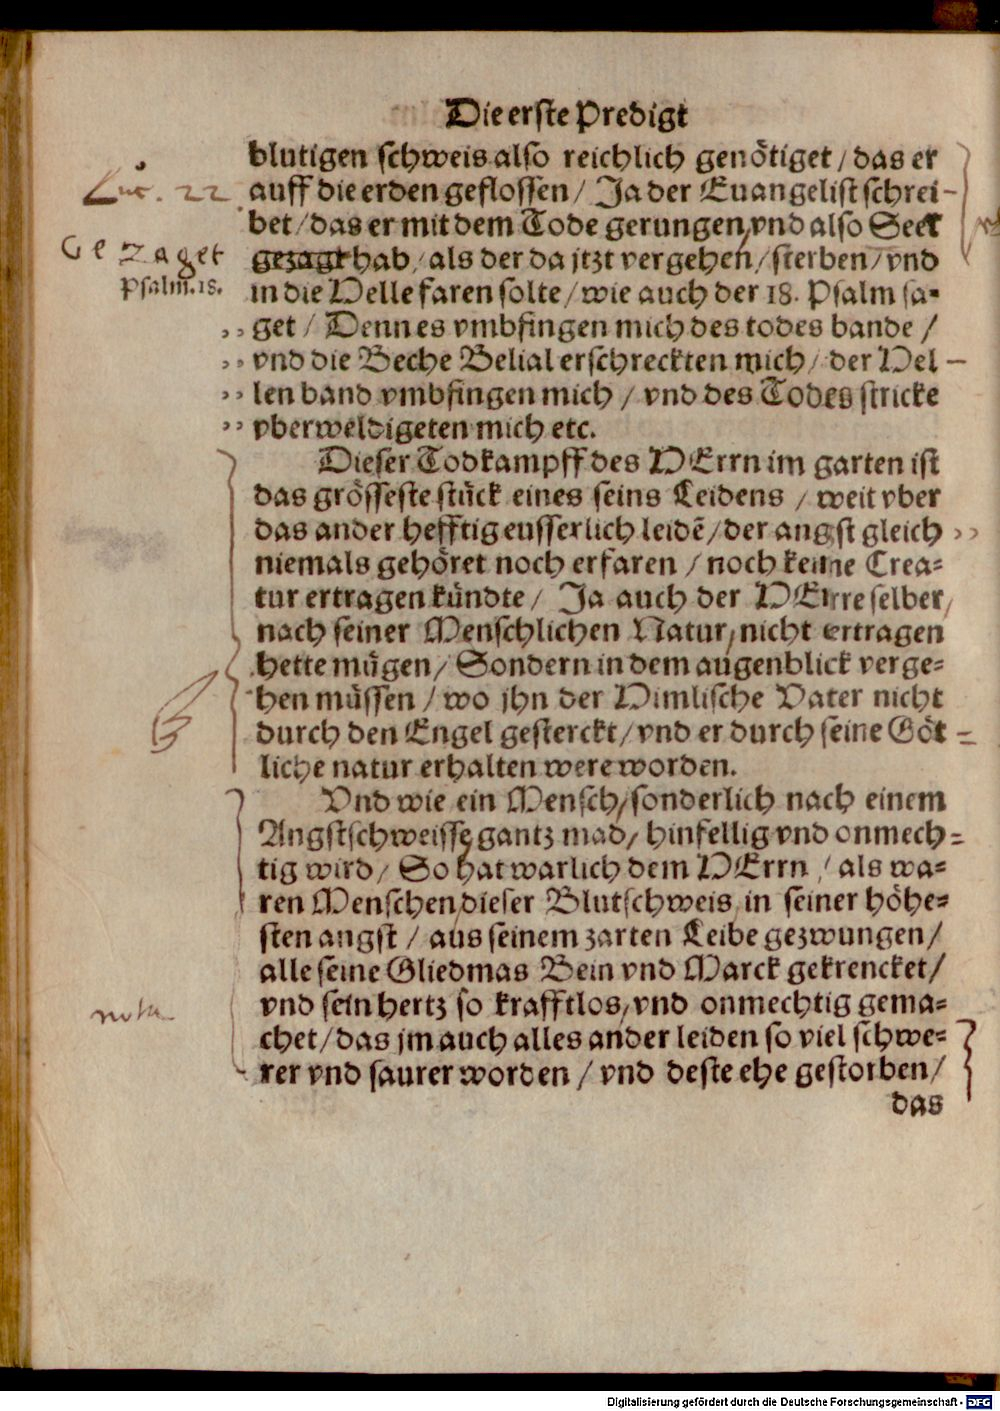 Die erste Predigt
blutigen schweis also reichlich genötiget / das er
Luc. 22 auff die erden geflossen / Ja der Euangelist schrei-
bet / das er mit dem Tode gerungen, vnd also Seel
Gezaget gezagt hab / als der da jtzt vergehen / sterben / vnd
Psalm. 18. in die Helle faren solte / wie auch der 18. Psalm sa-
„ get / Denn es vmbfingen mich des todes bande /
„ vnd die Beche Belial erschreckten mich / der Hel-
„ len band vmbfingen mich / vnd des Todes stricke
„ vberweldigeten mich etc.
Dieser Todkampff des HErrn im garten ist
das grösseste stück eines seins Leidens / weit vber
das ander hefftig eusserlich leidē / der angst gleich
niemals gehöret noch erfaren / noch keine Crea-
tur ertragen kündte / Ja auch der HErre selber,
nach seiner Menschlichen Natur, nicht ertragen
hette mügen / Sondern in dem augenblick verge-
hen müssen / wo jhn der Himlische Vater nicht
durch den Engel gesterckt / vnd er durch seine Göt-
liche natur erhalten were worden.
Vnd wie ein Mensch, sonderlich nach einem
Angstschweisse gantz mad / hinfellig vnd onmech-
tig wird / So hat warlich dem HErrn / als wa-
ren Menschen, dieser Blutschweis, in seiner höhe-
sten angst / aus seinem zarten Leibe gezwungen /
alle seine Gliedmas Bein vnd Marck gekrencket /
nota vnd sein hertz so krafftlos, vnd onmechtig gema-
chet / das jm auch alles ander leiden so viel schwe-
rer vnd saurer worden / vnd deste ehe gestorben /
das
Digitalisierung gefördert durch die Deutsche Forschungsgemeinschaft - DFG